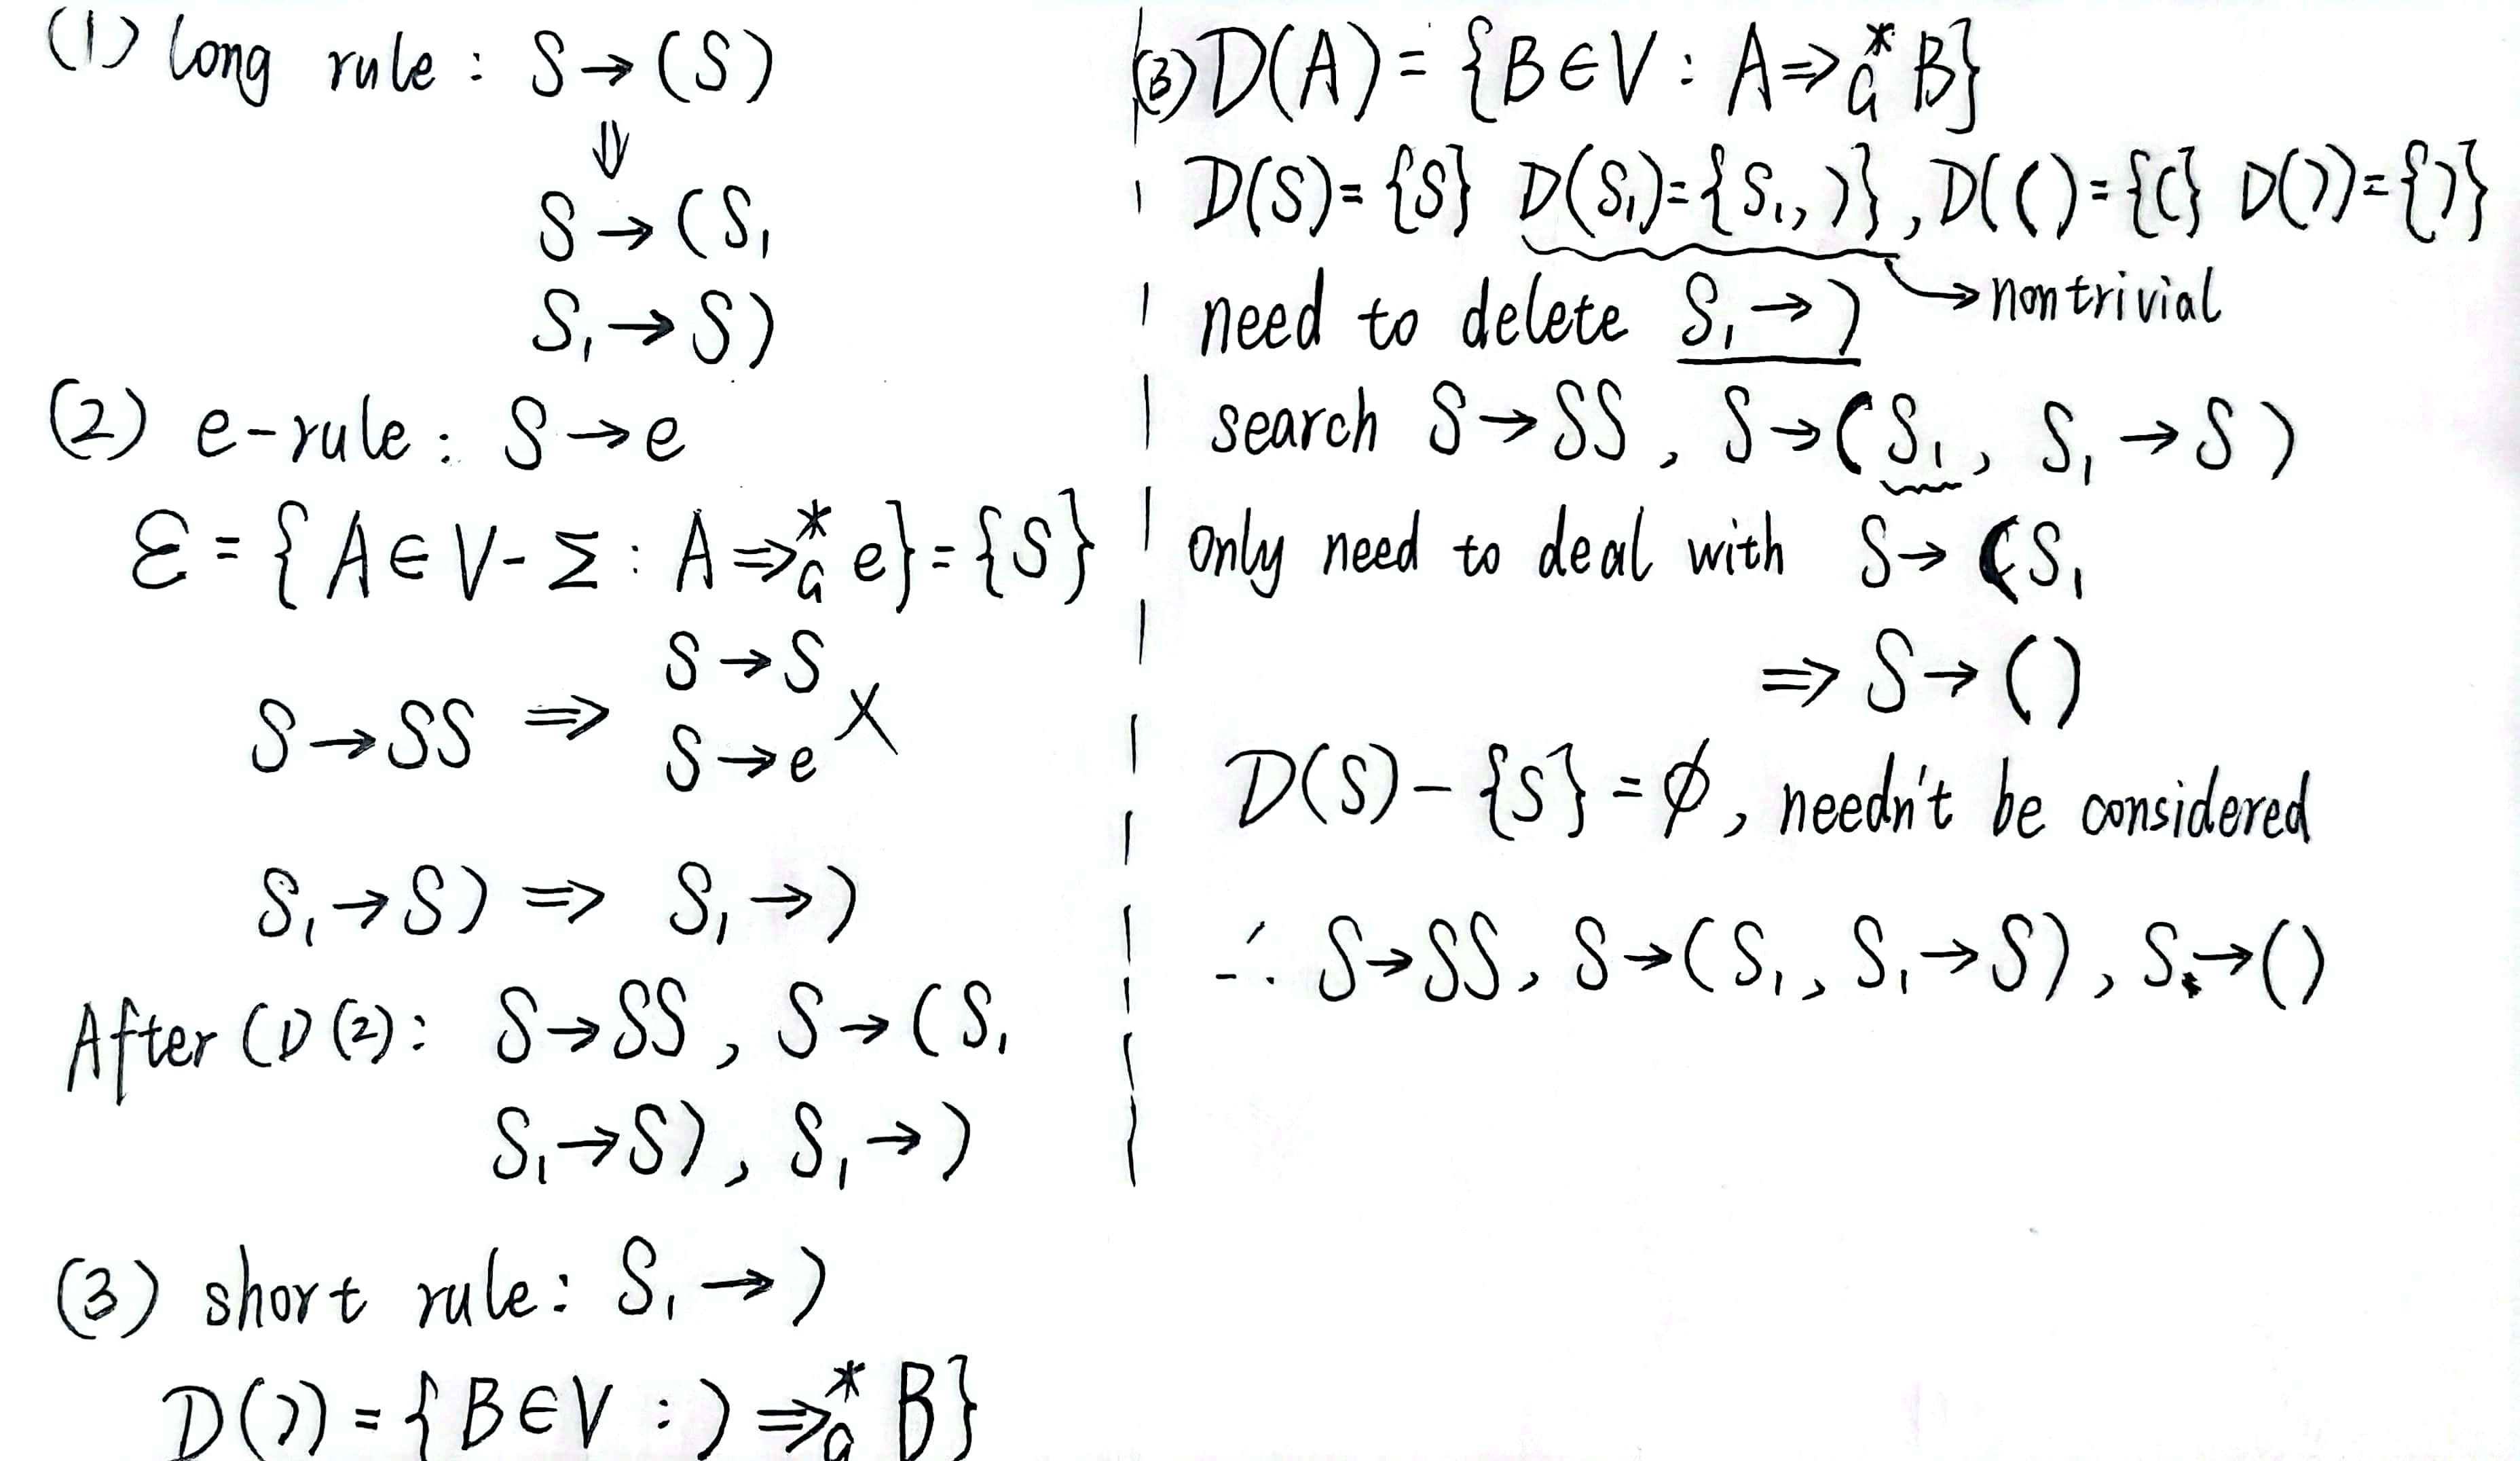 (1) long rule : S → (S)
⇓
S → (S₁
S₁ → S)
(2) e-rule : S → e
ℰ = { A ∈ V - Σ : A ⇒*G e} = {S}
S → S
S → SS ⇒ X
S → e
S₁ → S) ⇒ S₁ → )
After (1) (2): S → SS , S → (S₁
S₁ → S) , S₁ → )
(3) short rule: S₁ → )
D()) = { B ∈ V : ) ⇒*G B}
(3) D(A) = {B ∈ V : A ⇒*G B}
D(S) = {S} D(S₁) = {S₁, )} , D(() = {(} D()) = {)}
need to delete S₁ → ) → nontrivial
search S → SS , S → (S₁ , S₁ → S)
only need to deal with S → (S₁
⇒ S → ()
D(S) - {S} = ∅ , needn't be considered
∴ S → SS , S → (S₁ , S₁ → S) , S → ()